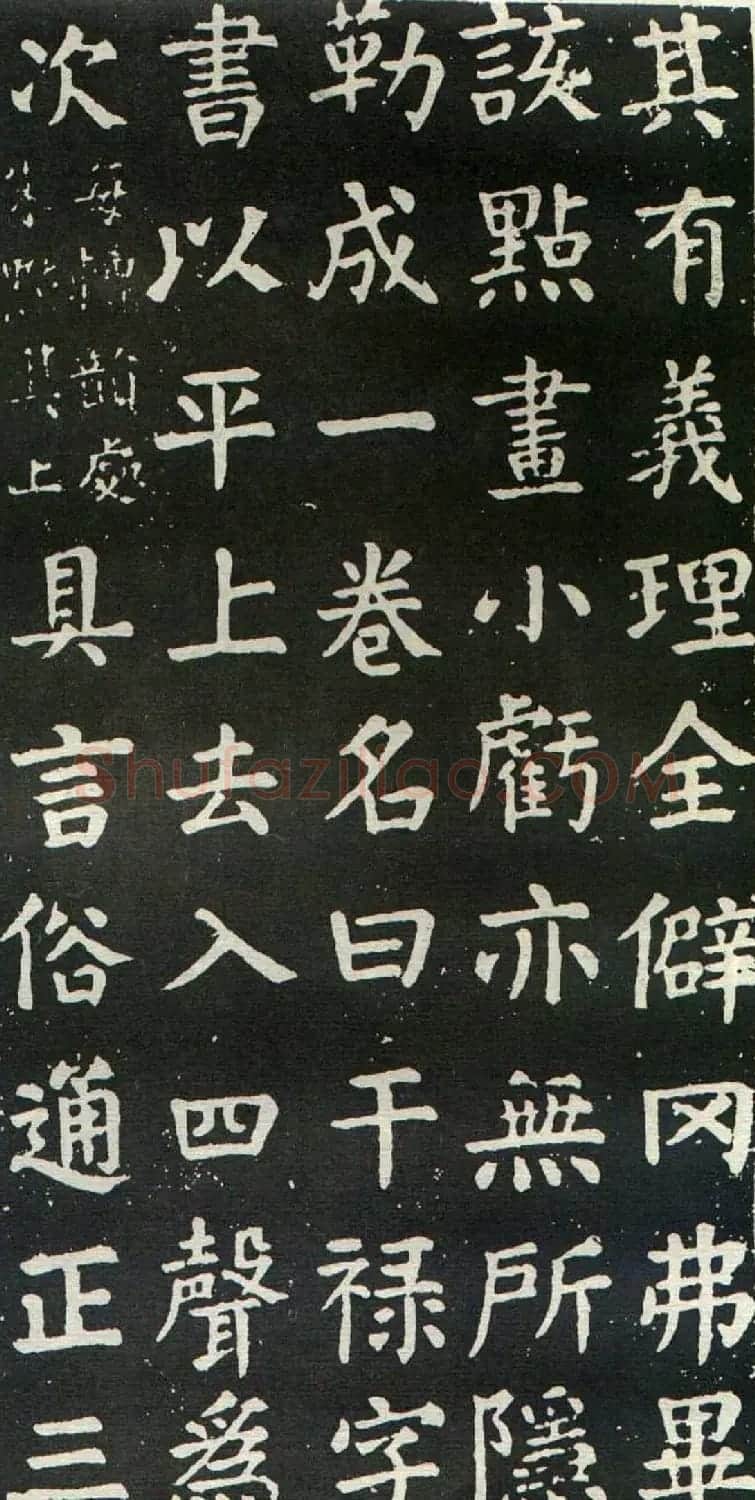 其有義理全僻冈弗畢
該點畫小虧亦無所隱
勒成一卷名曰干禄字
書以平上去入四聲爲
次每轉韻處朱點其上具言俗通正三
Shufaziliao.COM